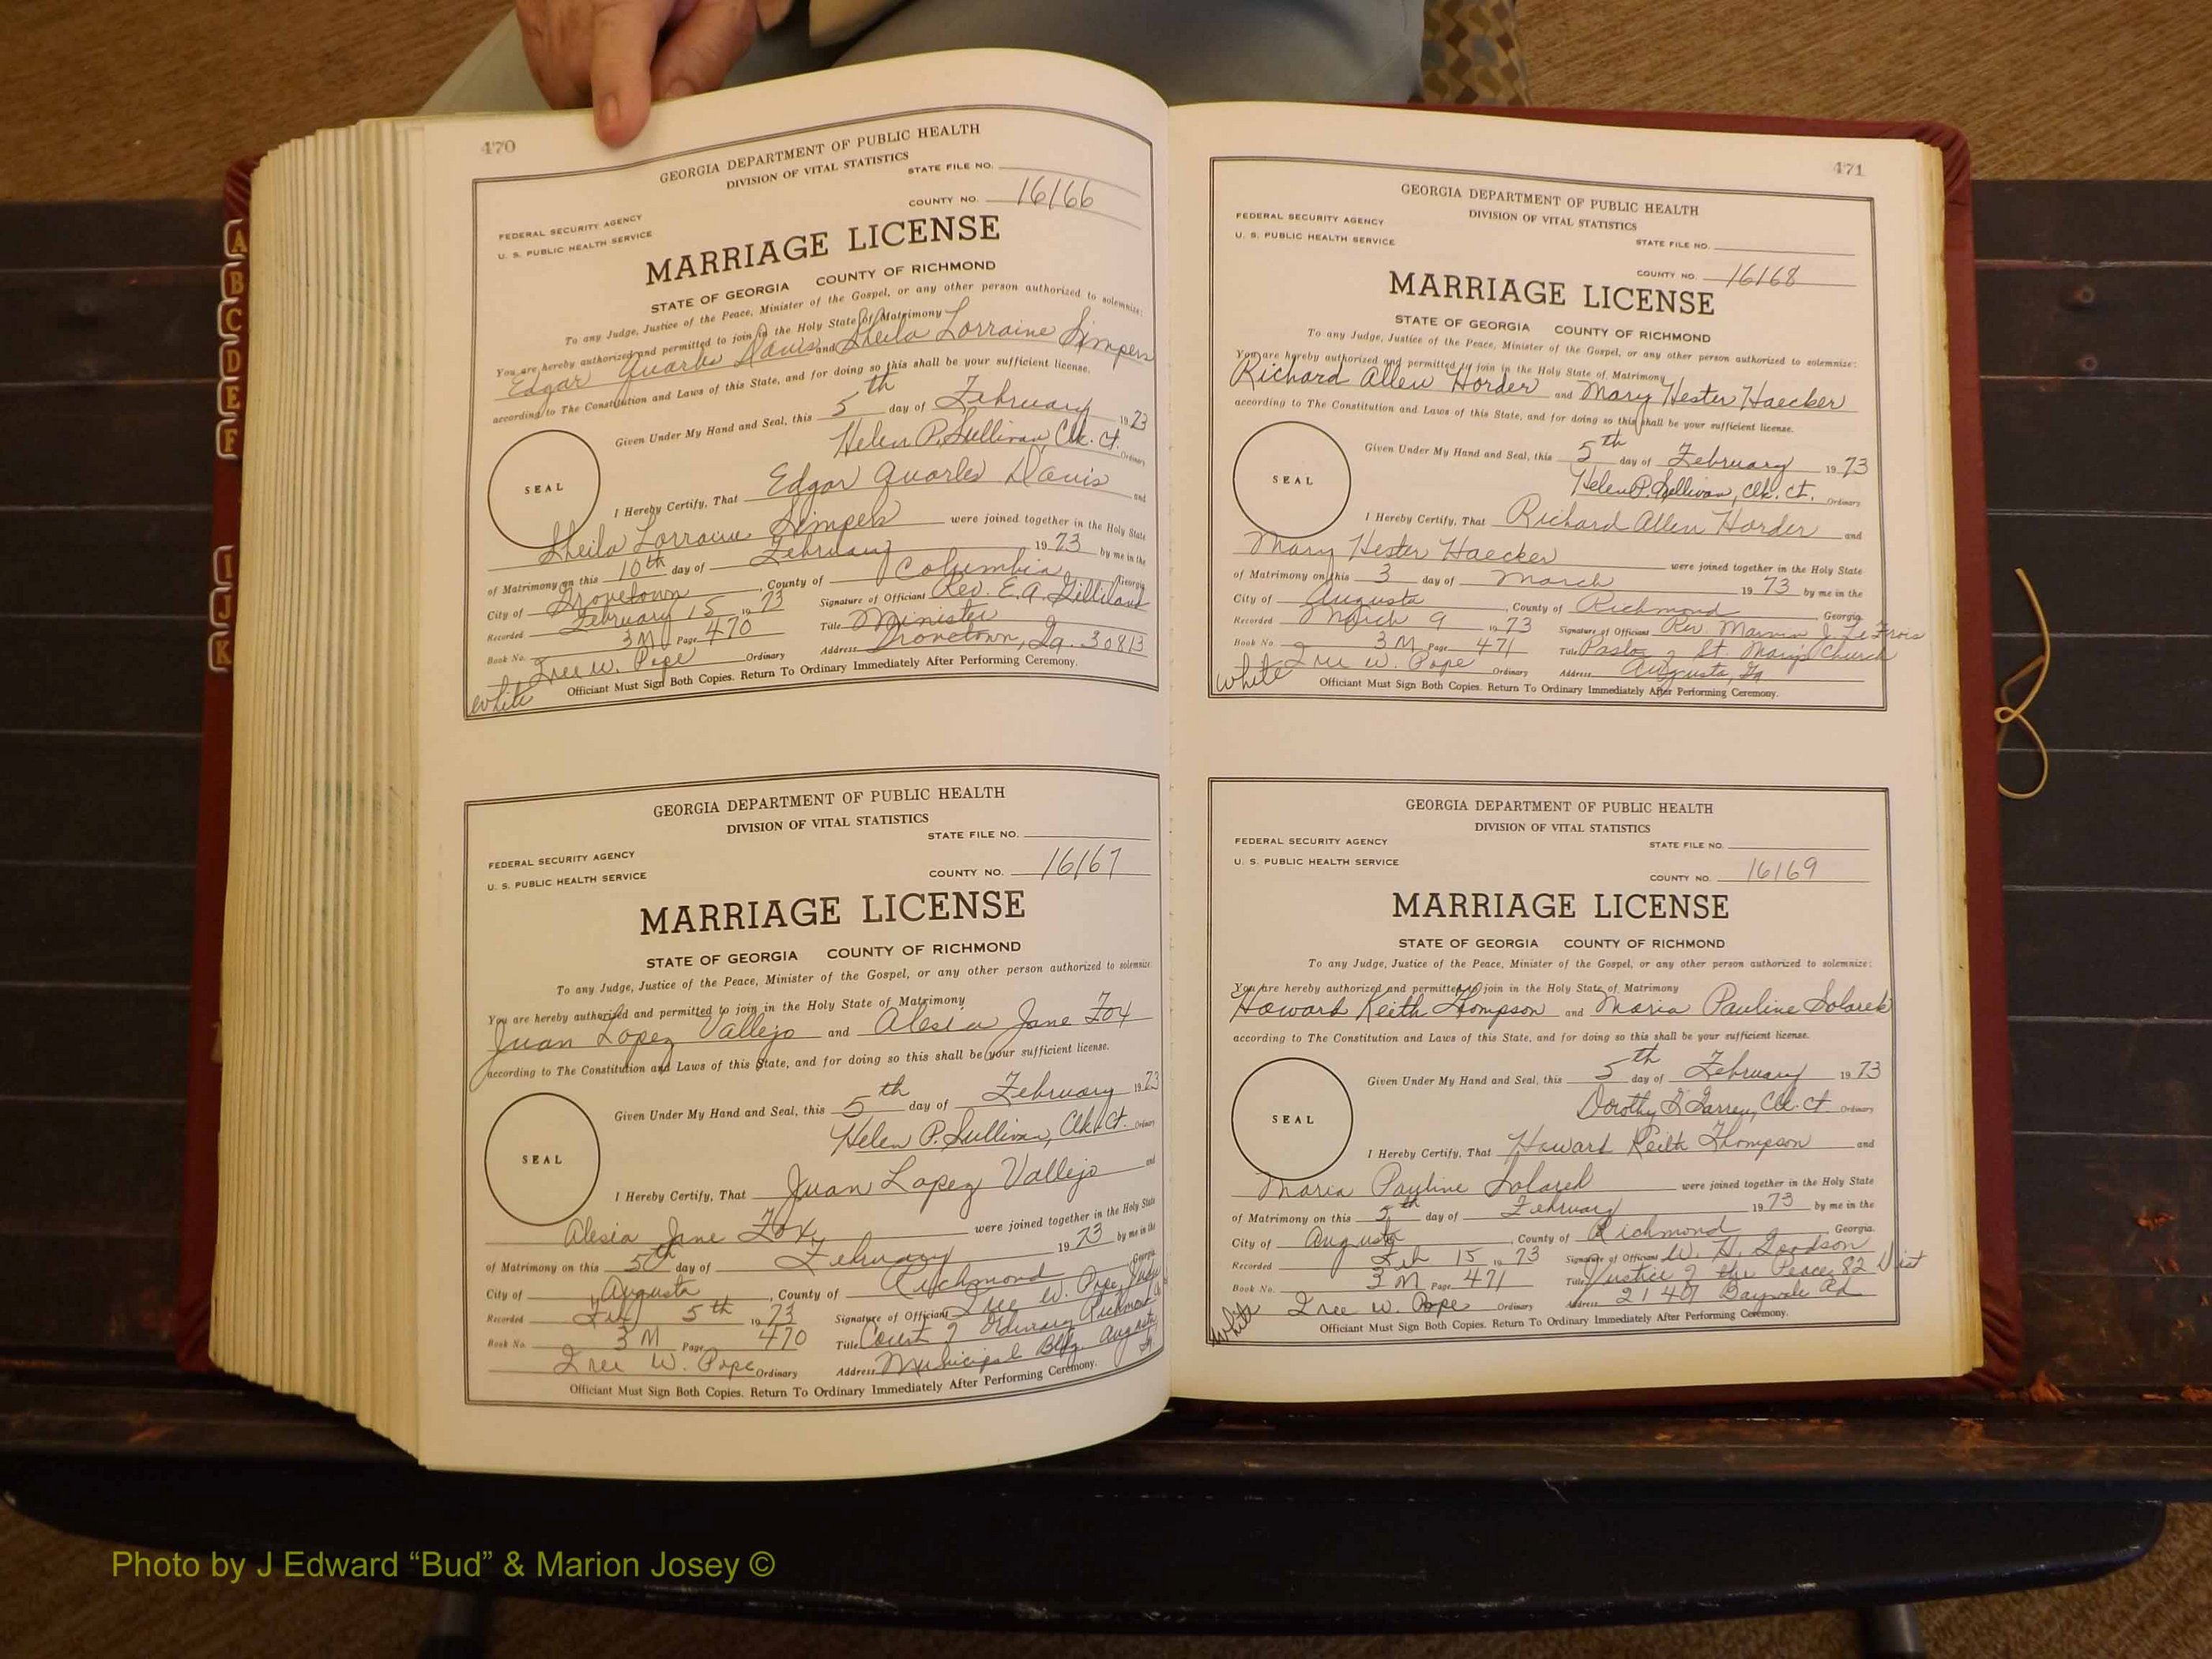 470
GEORGIA DEPARTMENT OF PUBLIC HEALTH
DIVISION OF VITAL STATISTICS
STATE FILE NO.
COUNTY NO. 16166
FEDERAL SECURITY AGENCY
U. S. PUBLIC HEALTH SERVICE
MARRIAGE LICENSE
STATE OF GEORGIA COUNTY OF RICHMOND
To any Judge, Justice of the Peace, Minister of the Gospel, or any other person authorized to solemnize:
You are hereby authorized and permitted to join in the Holy State of Matrimony
Edgar Quarles Davis and Sheila Lorraine Simpers
according to The Constitution and Laws of this State, and for doing so this shall be your sufficient license.
Given Under My Hand and Seal, this 5th day of February 1973
Helen P. Sullivan, Clk. Ct. Ordinary
SEAL
I Hereby Certify, That Edgar Quarles Davis and
Sheila Lorraine Simpers were joined together in the Holy State
of Matrimony on this 10th day of February 1973 by me in the
City of Grovetown, County of Columbia Georgia
Recorded February 15 1973 Signature of Official Rev. E. A. Gilliland
Book No. 3M Page 470 Title Minister
Iree W. Pope Ordinary Address Grovetown, Ga. 30813
white Officiant Must Sign Both Copies. Return To Ordinary Immediately After Performing Ceremony.
GEORGIA DEPARTMENT OF PUBLIC HEALTH
DIVISION OF VITAL STATISTICS
STATE FILE NO.
FEDERAL SECURITY AGENCY
U. S. PUBLIC HEALTH SERVICE
COUNTY NO. 16167
MARRIAGE LICENSE
STATE OF GEORGIA COUNTY OF RICHMOND
To any Judge, Justice of the Peace, Minister of the Gospel, or any other person authorized to solemnize
You are hereby authorized and permitted to join in the Holy State of Matrimony
Juan Lopez Vallejo and Alesia Jane Fox
according to The Constitution and Laws of this State, and for doing so this shall be your sufficient license.
Given Under My Hand and Seal, this 5th day of February 1973
Helen P. Sullivan, Clk. Ct. Ordinary
SEAL
I Hereby Certify, That Juan Lopez Vallejo and
Alesia Jane Fox were joined together in the Holy State
of Matrimony on this 5th day of February 1973 by me in the
City of Augusta, County of Richmond Georgia
Recorded Feb 5th 1973 Signature of Official Iree W. Pope, Judge
Book No. 3M Page 470 Title Court of Ordinary Richmond Co
Iree W. Pope Ordinary Address Municipal Bldg. Augusta Ga
Officiant Must Sign Both Copies. Return To Ordinary Immediately After Performing Ceremony.
471
GEORGIA DEPARTMENT OF PUBLIC HEALTH
DIVISION OF VITAL STATISTICS
FEDERAL SECURITY AGENCY
U. S. PUBLIC HEALTH SERVICE
STATE FILE NO.
COUNTY NO. 16168
MARRIAGE LICENSE
STATE OF GEORGIA COUNTY OF RICHMOND
To any Judge, Justice of the Peace, Minister of the Gospel, or any other person authorized to solemnize:
You are hereby authorized and permitted to join in the Holy State of Matrimony
Richard Allen Horder and Mary Hester Haecker
according to The Constitution and Laws of this State, and for doing so this shall be your sufficient license.
Given Under My Hand and Seal, this 5th day of February 1973
Helen P. Sullivan, Clk. Ct. Ordinary
SEAL
I Hereby Certify, That Richard Allen Horder and
Mary Hester Haecker were joined together in the Holy State
of Matrimony on this 3 day of March 1973 by me in the
City of Augusta, County of Richmond Georgia
Recorded March 9 1973 Signature of Official Rev. Marvin J. Le Frois
Book No. 3M Page 471 Title Pastor of St. Mary's Church
Iree W. Pope Ordinary Address Augusta, Ga
white Officiant Must Sign Both Copies. Return To Ordinary Immediately After Performing Ceremony.
GEORGIA DEPARTMENT OF PUBLIC HEALTH
DIVISION OF VITAL STATISTICS
FEDERAL SECURITY AGENCY
STATE FILE NO.
U. S. PUBLIC HEALTH SERVICE
COUNTY NO. 16169
MARRIAGE LICENSE
STATE OF GEORGIA COUNTY OF RICHMOND
To any Judge, Justice of the Peace, Minister of the Gospel, or any other person authorized to solemnize:
You are hereby authorized and permitted to join in the Holy State of Matrimony
Howard Keith Thompson and Maria Pauline Solarek
according to The Constitution and Laws of this State, and for doing so this shall be your sufficient license.
Given Under My Hand and Seal, this 5th day of February 1973
Dorothy Clk. Ct. Ordinary
SEAL
I Hereby Certify, That Howard Keith Thompson and
Maria Pauline were joined together in the Holy State
of Matrimony on this 5th day of February 1973 by me in the
City of Augusta, County of Richmond Georgia.
Recorded Feb 15 1973 Signature of Official W. H. Goodson
Book No. 3M Page 471 Title Justice of the Peace 82 Dist
Iree W. Pope Ordinary Address 2140 Rd
white Officiant Must Sign Both Copies. Return To Ordinary Immediately After Performing Ceremony.
A
B
C
D
E
F
I
J
K
Photo by J Edward “Bud” & Marion Josey ©